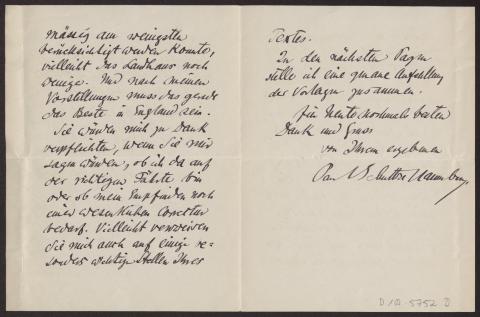 mässig am wenigsten
berücksichtigt werden konnte,
vielleicht das Landhaus noch
wenige. Und nach meinen
Vorstellungen muss das gerade
das Beste in England sein.
Sie würden mich zu Dank
verpflichten, wenn Sie mir
sagen würden, ob ich da auf
der richtigen Fährte bin
oder ob mein Empfinden noch
einer wesentlichen Correctur
bedarf. Vielleicht verweisen
Sie mich auch auf einige re-
sonders wichtige Stellen Ihres
Textes.
In den nächsten Tagen
stelle ich eine genaue Aufstellung
der Vorlagen zusammen.
Für heute nochmals besten
Dank und Gruss
von Ihrem ergebenen
Paul Schultze Naumburg
D 102-5752 D